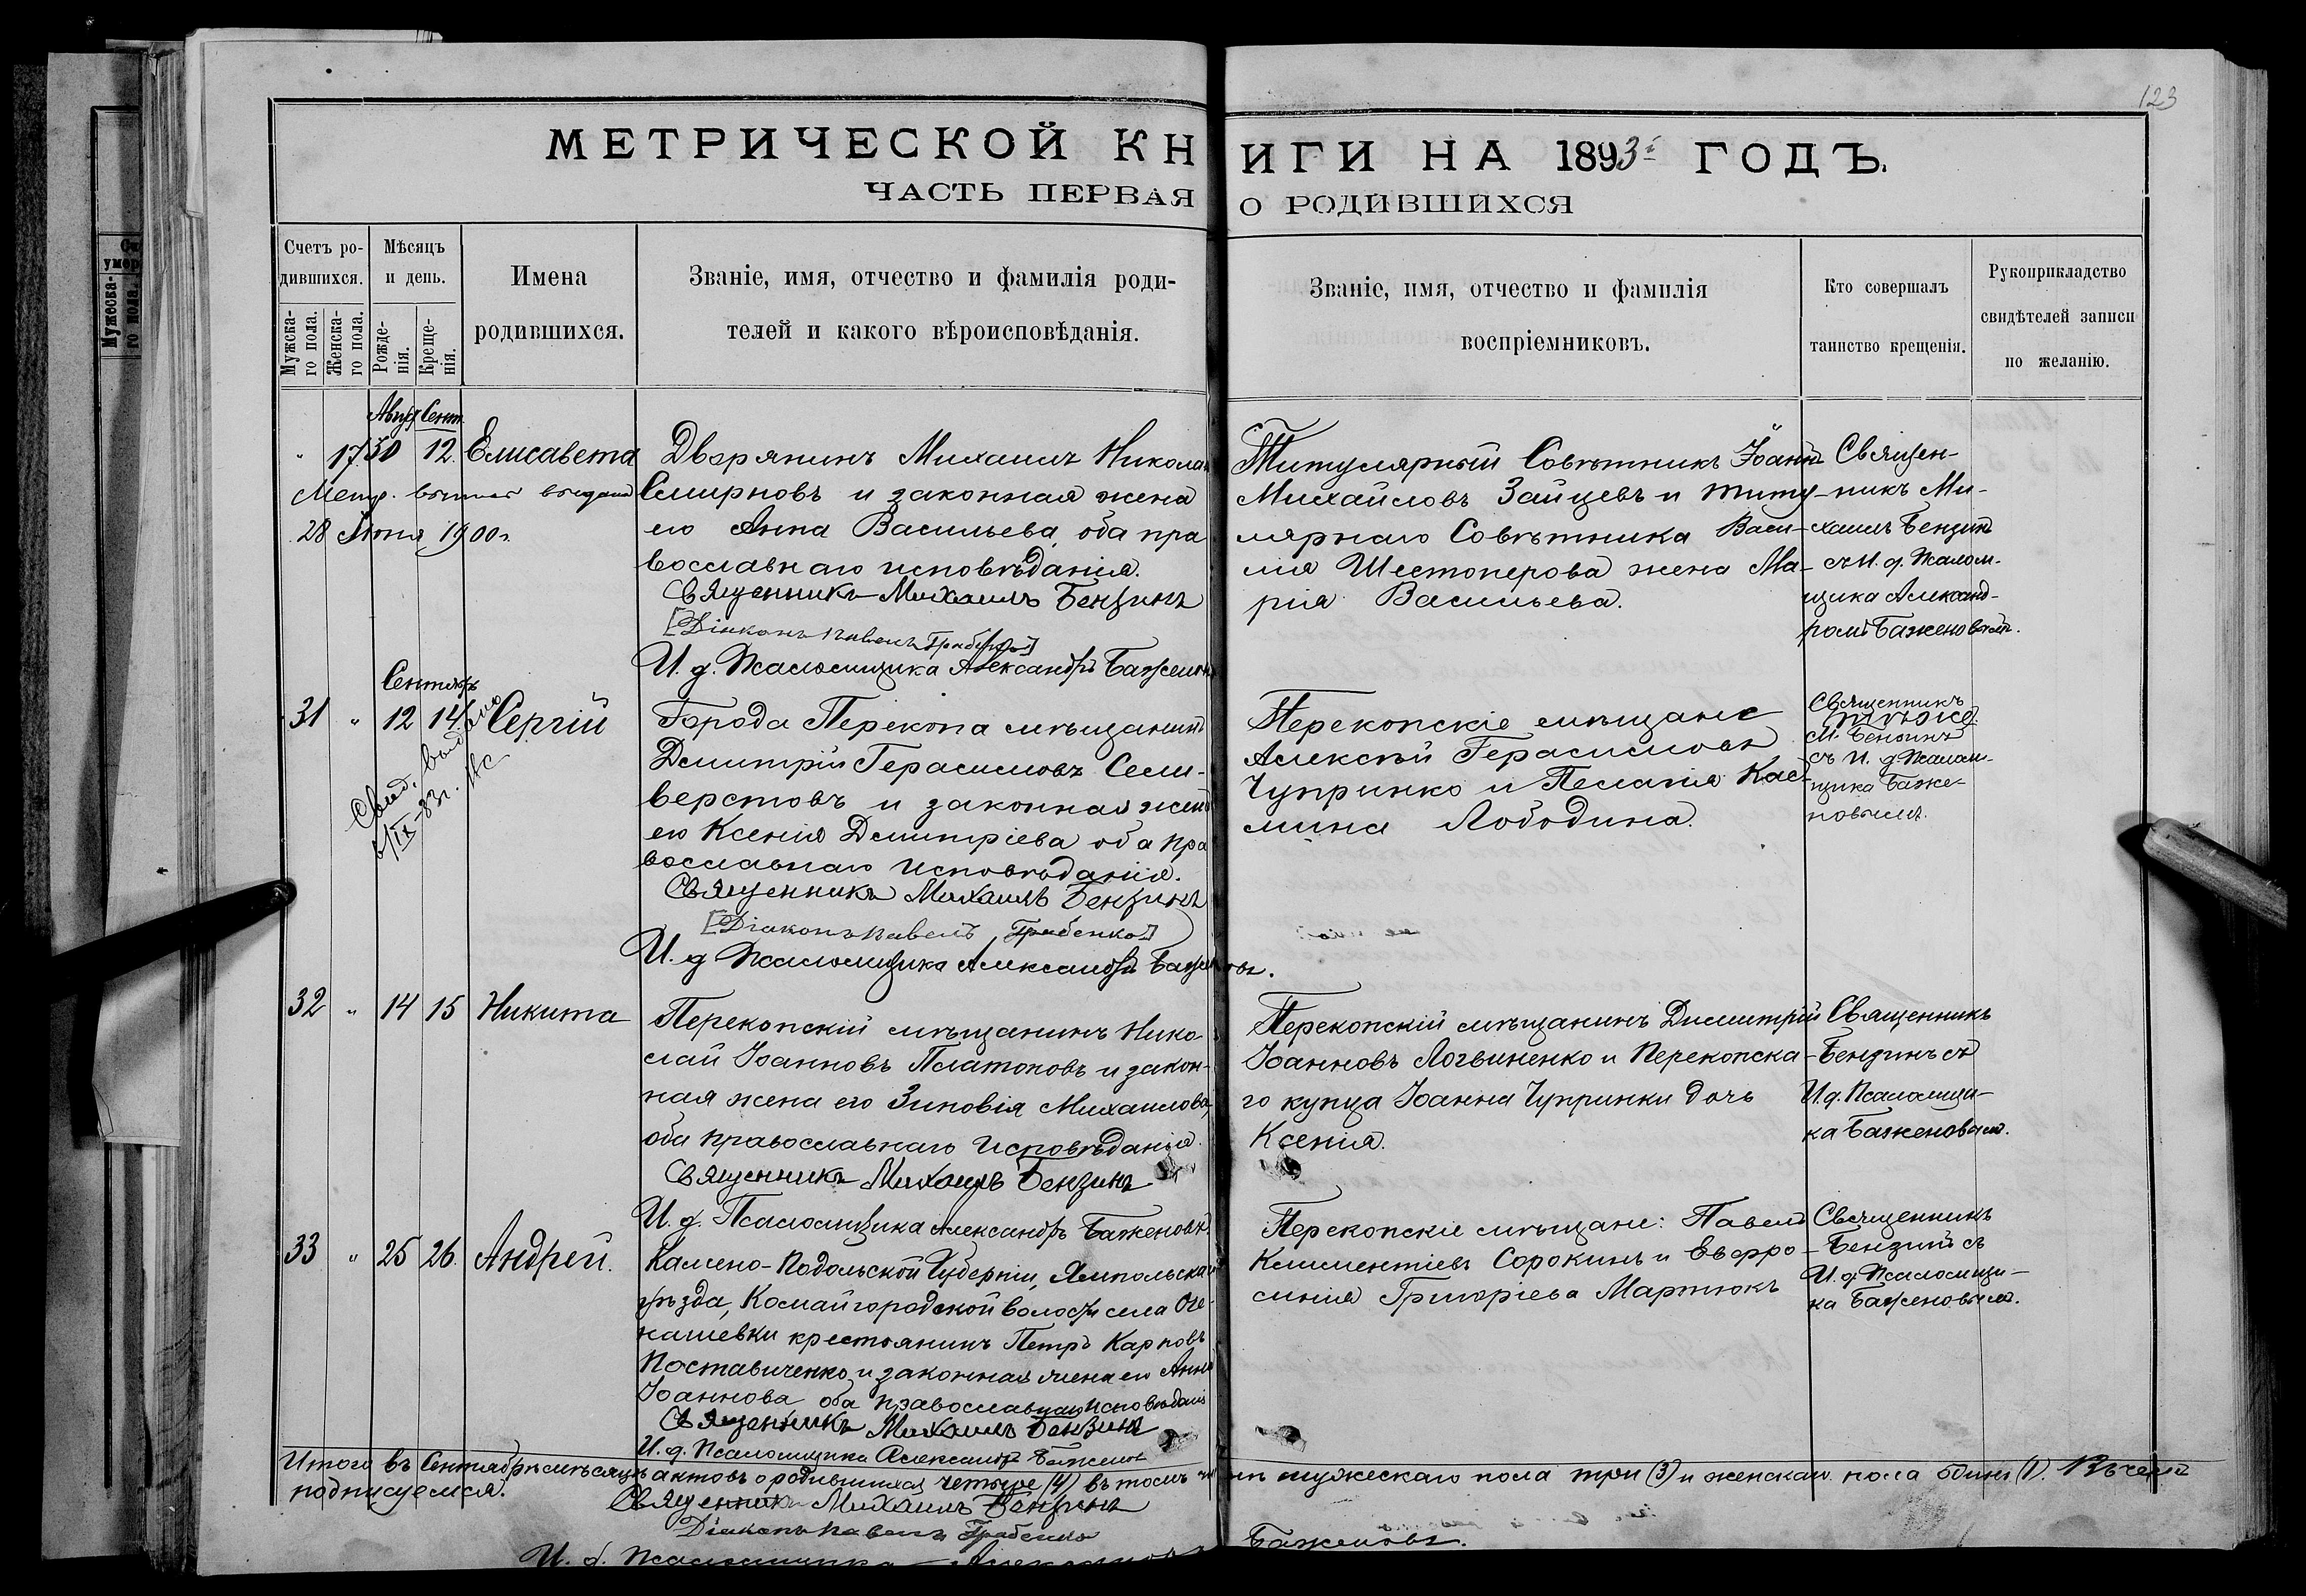 123
МЕТРИЧЕСКОЙ КНИГИ НА 1893й ГОДЪ.
ЧАСТЬ ПЕРВАЯ О РОДИВШИХСЯ
Счетъ родившихся.
Мужска-
го пола.
Женска-
го пола.
Мѣсяцъ
и день.
Рожде-
нія.
Креще-
нія.
Имена
родившихся.
Званіе, имя, отчество и фамилія роди-
телей и какого вѣроисповѣданія.
Званіе, имя, отчество и фамилія
воспріемниковъ.
Кто совершалъ
таинство крещенія.
Рукоприкладство
свидѣтелей записи
по желанію.
Август Сент.
" 17 30 12. Елисавета
Метр. выдана
28 Іюня 1900г.
Дворянинъ Михаилъ Николаевъ
Смирновъ и законная жена
его Анна Васильева, оба пра
вославнаго исповѣданія.
Священникъ Михаилъ Бензинъ
[Діаконъ Павелъ Грабенко]
И. д. Псаломщика Александръ Баженовъ
Титулярный Совѣтникъ Іоаннъ
Михайловъ Зайцевъ и титу-
лярнаго Совѣтника Васи-
лія Шестоперова жена Ма-
рія Васильева.
Священ-
никъ Ми-
хаилъ Бензинъ
съ И. д. Псалом-
щика Александ-
ромъ Баженовымъ.
Сентябрь
31 " 12 14 Сергій
Свид. выдано
6/IX-83г.
Города Перекопа мѣщанинъ
Димитрій Герасимовъ Семи-
верстовъ и законная жена
его Ксенія Димитріева оба пра
вославнаго исповѣданія.
Священникъ Михаилъ Бензинъ
[Діаконъ Павелъ Грабенко]
И. д Псаломщика Александръ Баженовъ.
Перекопскіе мѣщане
Алексѣй Герасимовъ
Чупринко и Пелагія Кас-
мина Лободина.
Священникъ
М. Бензинъ
съ И. д. Псалом-
щика Баже-
новымъ.
32 " 14 15 Никита
Перекопскій мѣщанинъ Нико-
лай Іоанновъ Платоновъ и закон-
ная жена его Зиновія Михаилова,
оба православнаго исповѣданія.
Священникъ Михаилъ Бензинъ
И. д. Псаломщика Александръ Баженовъ.
Перекопскій мѣщанинъ Димитрій
Іоанновъ Логвиненко и Перекопска-
го купца Іоанна Чупринки дочь
Ксенія.
Священникъ
Бензинъ съ
И. д. Псаломщи-
ка Баженовым.
33 " 25 26. Андрей.
Камено-Подольской Губерніи, Ямпольскаго
уѣзда, Комайгородской волости села
крестьянинъ Петръ Карповъ
Поставиченко и законная жена его Анна
Іоаннова оба православнаго исповѣданія
Священникъ Михаилъ Бензинъ
И. д. Псаломщика Александръ Баженовъ
Перекопскіе мѣщане: Павелъ
Климентіевъ Сорокинъ и Евфро-
синія Григоріева Мартюкъ
Священникъ
Бензинъ съ
И. д. Псаломщи-
ка Баженовым.
Итого въ Сентябрѣ мѣсяцѣ актовъ о родившихся четыре (4) въ томъ числѣ мужескаго пола три (3) и женскаго пола одинъ (1). Въ чемъ
подписуемся.
Священникъ Михаилъ Бензинъ
Діаконъ Павелъ Грабенко
И. д. Псаломщика Александръ Баженовъ.